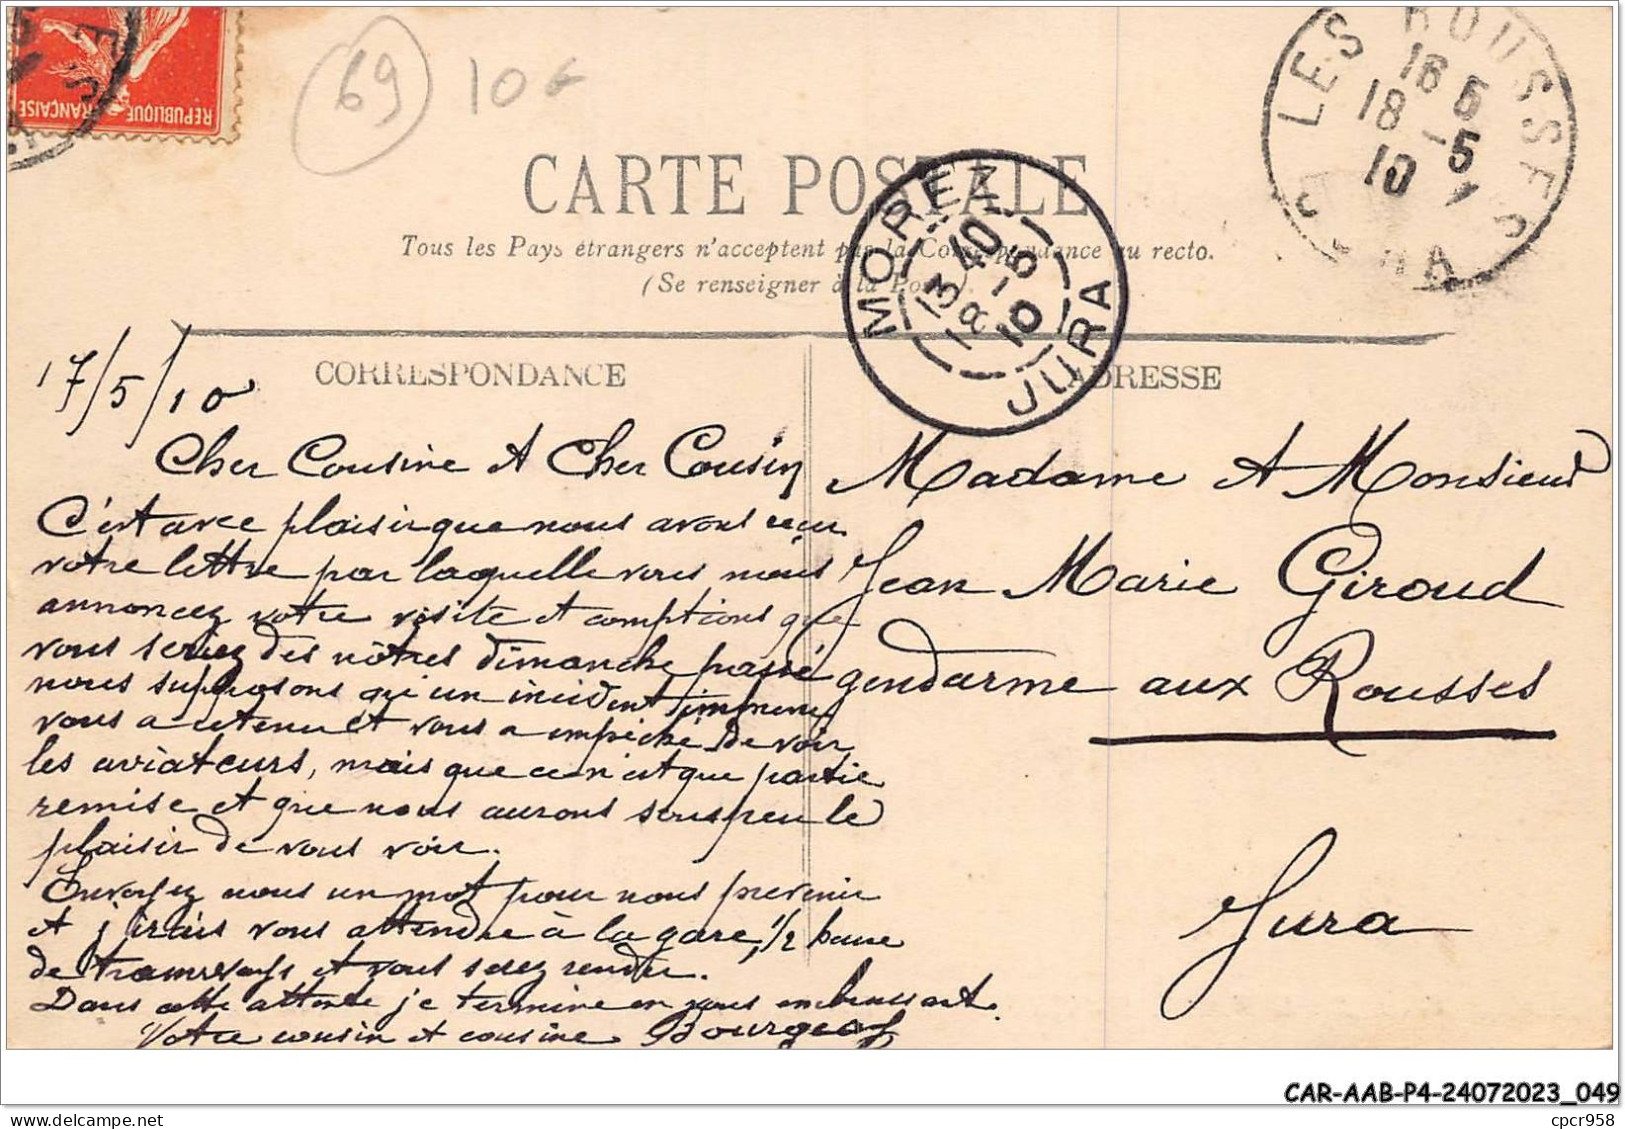 REPUBLIQUE FRANÇAISE
69
10€
LES ROUSSES
16 5
18 - 5
10
CARTE POSTALE
Tous les Pays étrangers n'acceptent pas la Correspondance au recto.
(Se renseigner à la Poste).
MOREZ
13 40
18 - 5
10
JURA
CORRESPONDANCE
ADRESSE
17/5/10
Cher Cousine et Cher Cousin
C'est avec plaisir que nous avons recu
votre lettre par laquelle vous nous
annoncez votre visite et comptions que
vous seriez des nôtres dimanche passé
nous supposons qu'un incident
vous a retenu et vous a empêché de voir
les aviateurs, mais que ce n'est que partie
remise et que nous aurons sous peu le
plaisir de vous voir.
Envoyez nous un mot pour nous prevenir
et j'irais vous attendre à la gare, 1/2 heure
de tramways et vous serez rendu.
Dans cette attente je termine en vous embrassant.
Votre cousin et cousine Bourgeois
Madame et Monsieur
Jean Marie Giroud
gendarme aux Rousses
Jura
CAR-AAB-P4-24072023_049
cpcr958